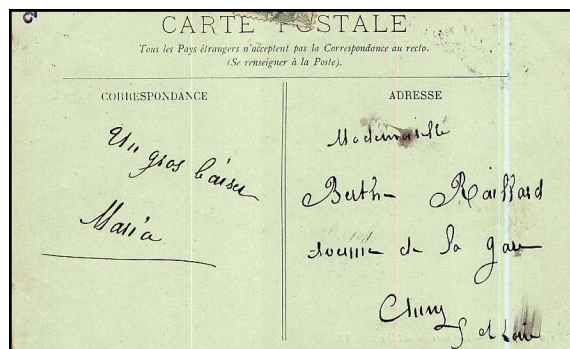 CARTE POSTALE
Tous les Pays étrangers n'acceptent pas la Correspondance au recto.
(Se renseigner à la Poste).
CORRESPONDANCE
Un gros baiser
Maria
ADRESSE
Mademoiselle
Berthe Raillard
avenue de la gare
Cluny
S et Loire